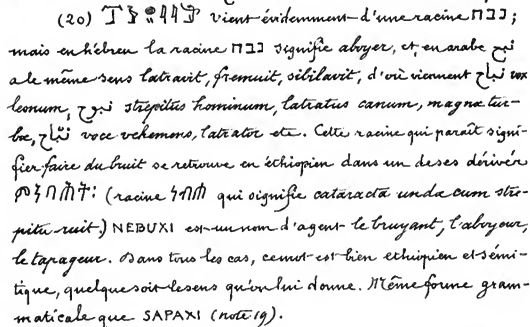 (20) vient évidemment d'une racine נבח ;
mais en hébreu la racine נבח signifie aboyer, et en arabe نبح
a le même sens latravit, fremuit, sibilavit, d'où viennent نباح vox
leonum, نبوح strepitus hominum, latratus canum, magnæ tur-
bæ, نبّاح voce vehemens, latrator etc. Cette racine qui paraît signi-
fier faire du bruit se retrouve en éthiopien dans un de ses dérivés
(racine qui signifie cataracta unda cum stre-
pitu ruit.) NEBUXI est un nom d'agent le bruyant, l'aboyeur,
le tapageur. Dans tous les cas, ce mot est bien ethiopien et sémi-
tique, quelque soit le sens qu'on lui donne. Même forme gram-
maticale que SAPAXI (note 19).